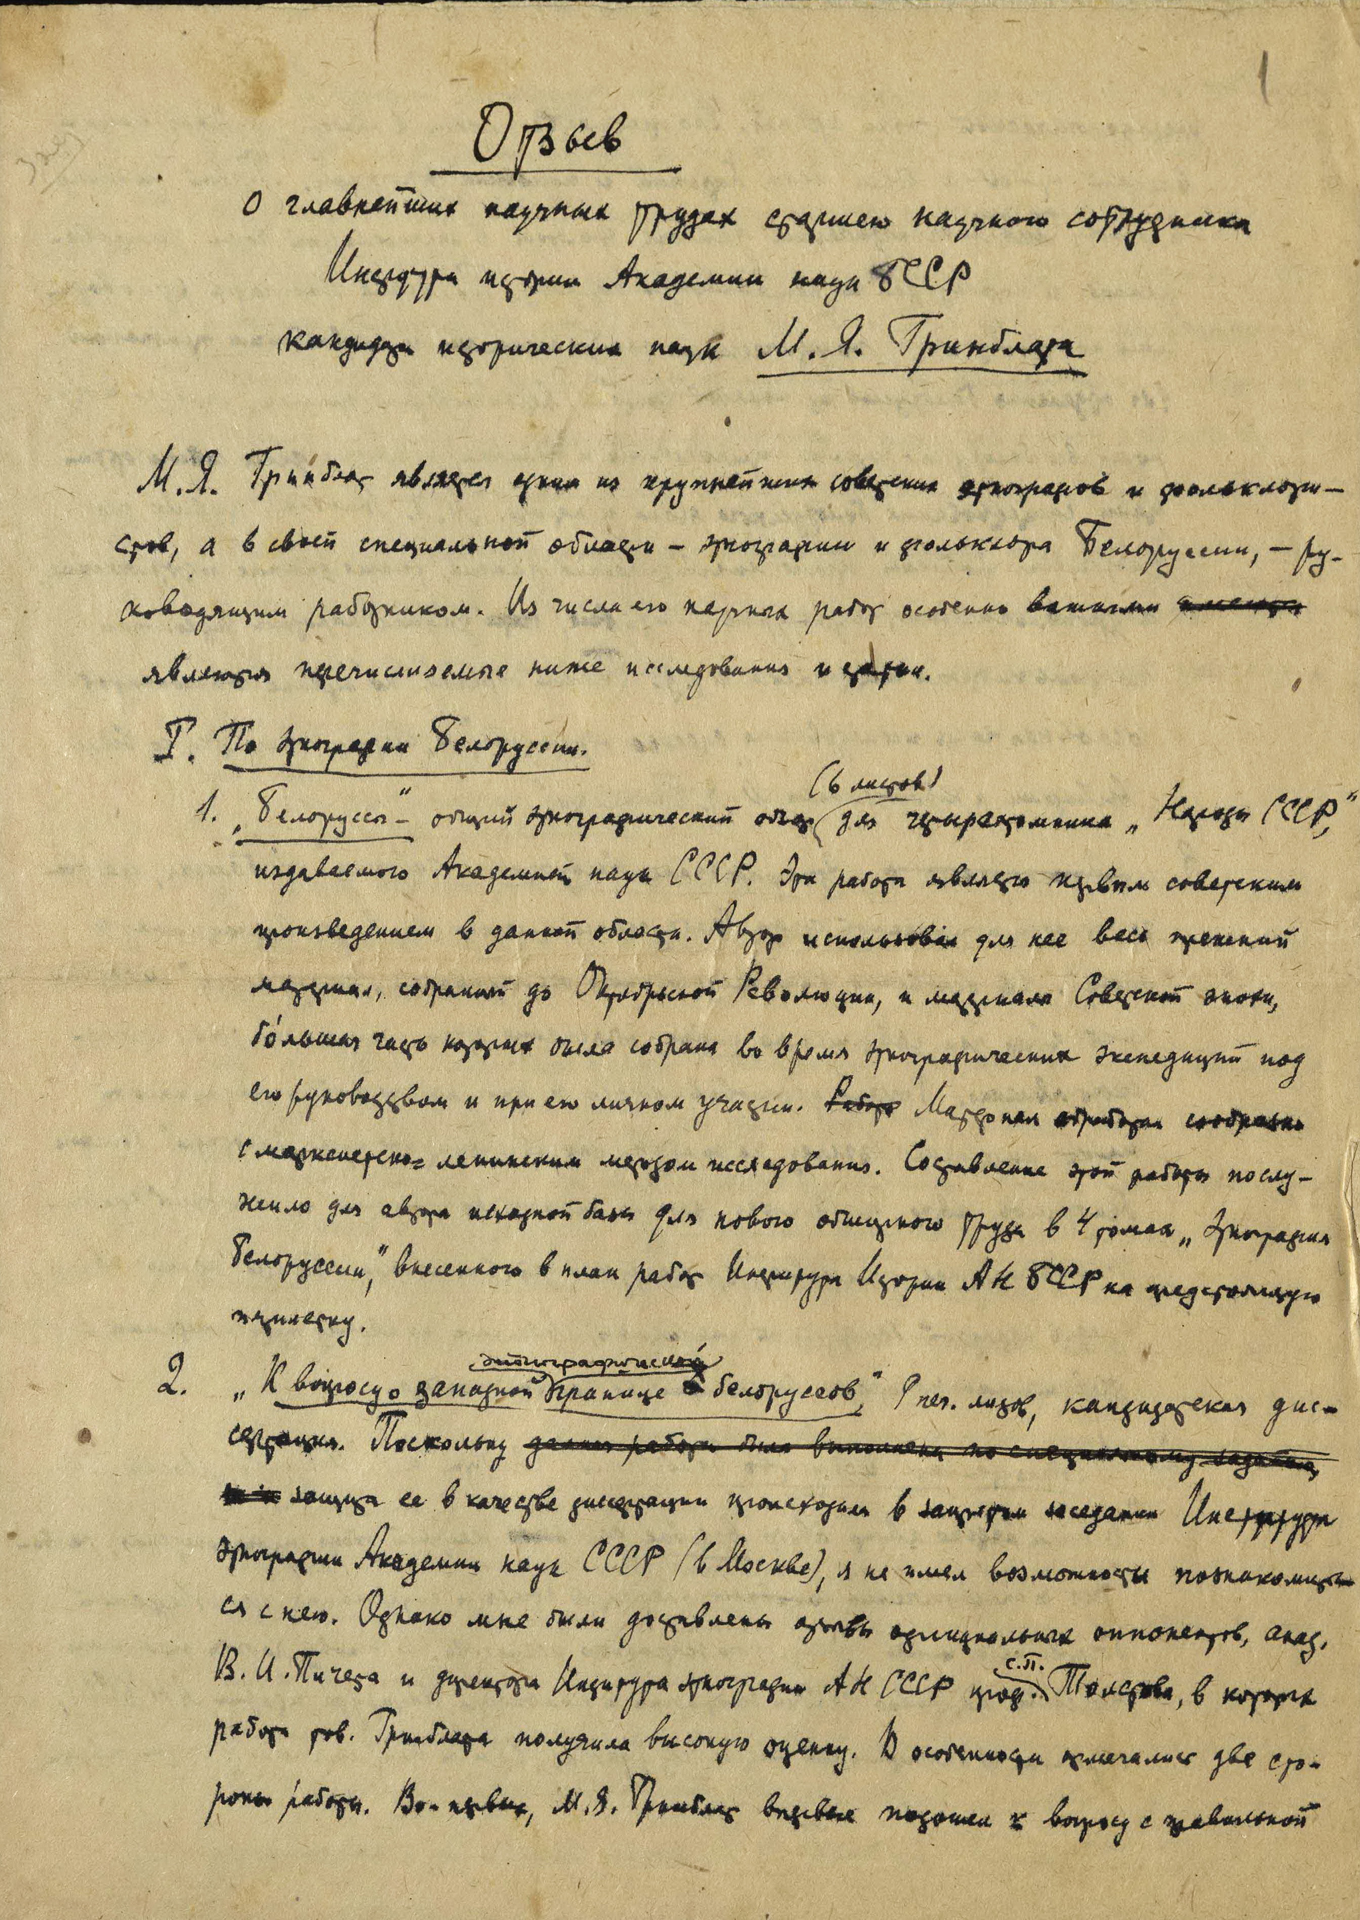 1
Отзыв
о главнейших научных трудах старшего научного сотрудника
Института истории Академии наук БССР
кандидата исторических наук М. Я. Гринблата
М. Я. Гринблат является одним из крупнейших советских этнографов и фольклори-
стов, а в своей специальной области – этнографии и фольклора Белоруссии, – ру-
ководящим работником. Из числа его научных работ особенно важными
являются перечисляемые ниже исследования и статьи.
I. По этнографии Белоруссии.
(6 листов)
1. „Белоруссы" – общий этнографический обзор для четырехтомника „Народы СССР",
издаваемого Академией наук СССР. Эта работа является первым советским
произведением в данной области. Автор использовал для нее весь прежний
материал, собранный до Октябрьской Революции, и материалы Советской эпохи,
бо́льшая часть которых была собрана во время этнографических экспедиций под
его руководством и при его личном участии. Работа Материал обработан сообразно
с марксистско-ленинским методом исследования. Составление этой работы послу-
жило для автора исходной базой для нового обширного труда в 4 томах „Этнография
Белоруссии", внесенного в план работ Института Истории АН БССР на предстоящую
пятилетку.
этнографической
2. „К вопросу о западной границе белоруссов", 9 печ. листов, кандидатская дис-
сертация. Поскольку данная работа была выполнена по специальному заданию,
защита ее в качестве диссертации происходила в закрытом заседании Института
этнографии Академии наук СССР (в Москве), я не имел возможности познакомить-
ся с нею. Однако мне были доставлены отзывы официальных оппонентов, акад.
В. И. Пичета и директора Института этнографии АН СССР проф. С.П. Толстова, в которых
работа тов. Гринблата получила высокую оценку. В особенности отмечались две сто-
роны работы. Во-первых, М. Я. Гринблат впервые подошел к вопросу с правильной